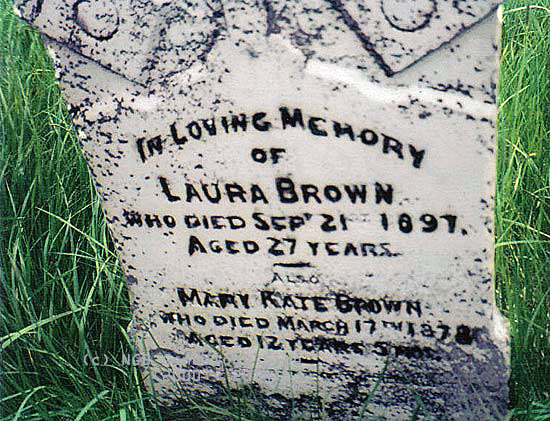 IN LOVING MEMORY
OF
LAURA BROWN
WHO DIED SEPT 21ST 1897.
AGED 27 YEARS.
ALSO
MARY KATE BROWN
WHO DIED MARCH 17TH 1878
AGED 12 YEARS 5
(c)